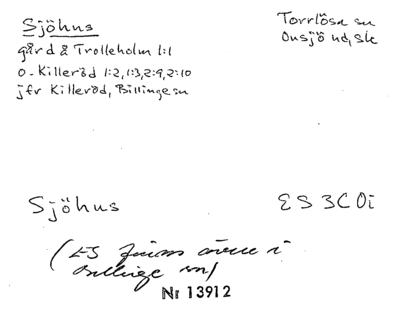 Sjöhus
Torrlösa sn
gård å Trolleholm 1:1
Onsjö hd, Sk
o. Killeröd 1:2, 1:3, 2:9, 2:10
jfr Killeröd, Billinge sn
Sjöhus
ES 3C 0i
(ES finns även i
Billinge sn)
Nr 13912